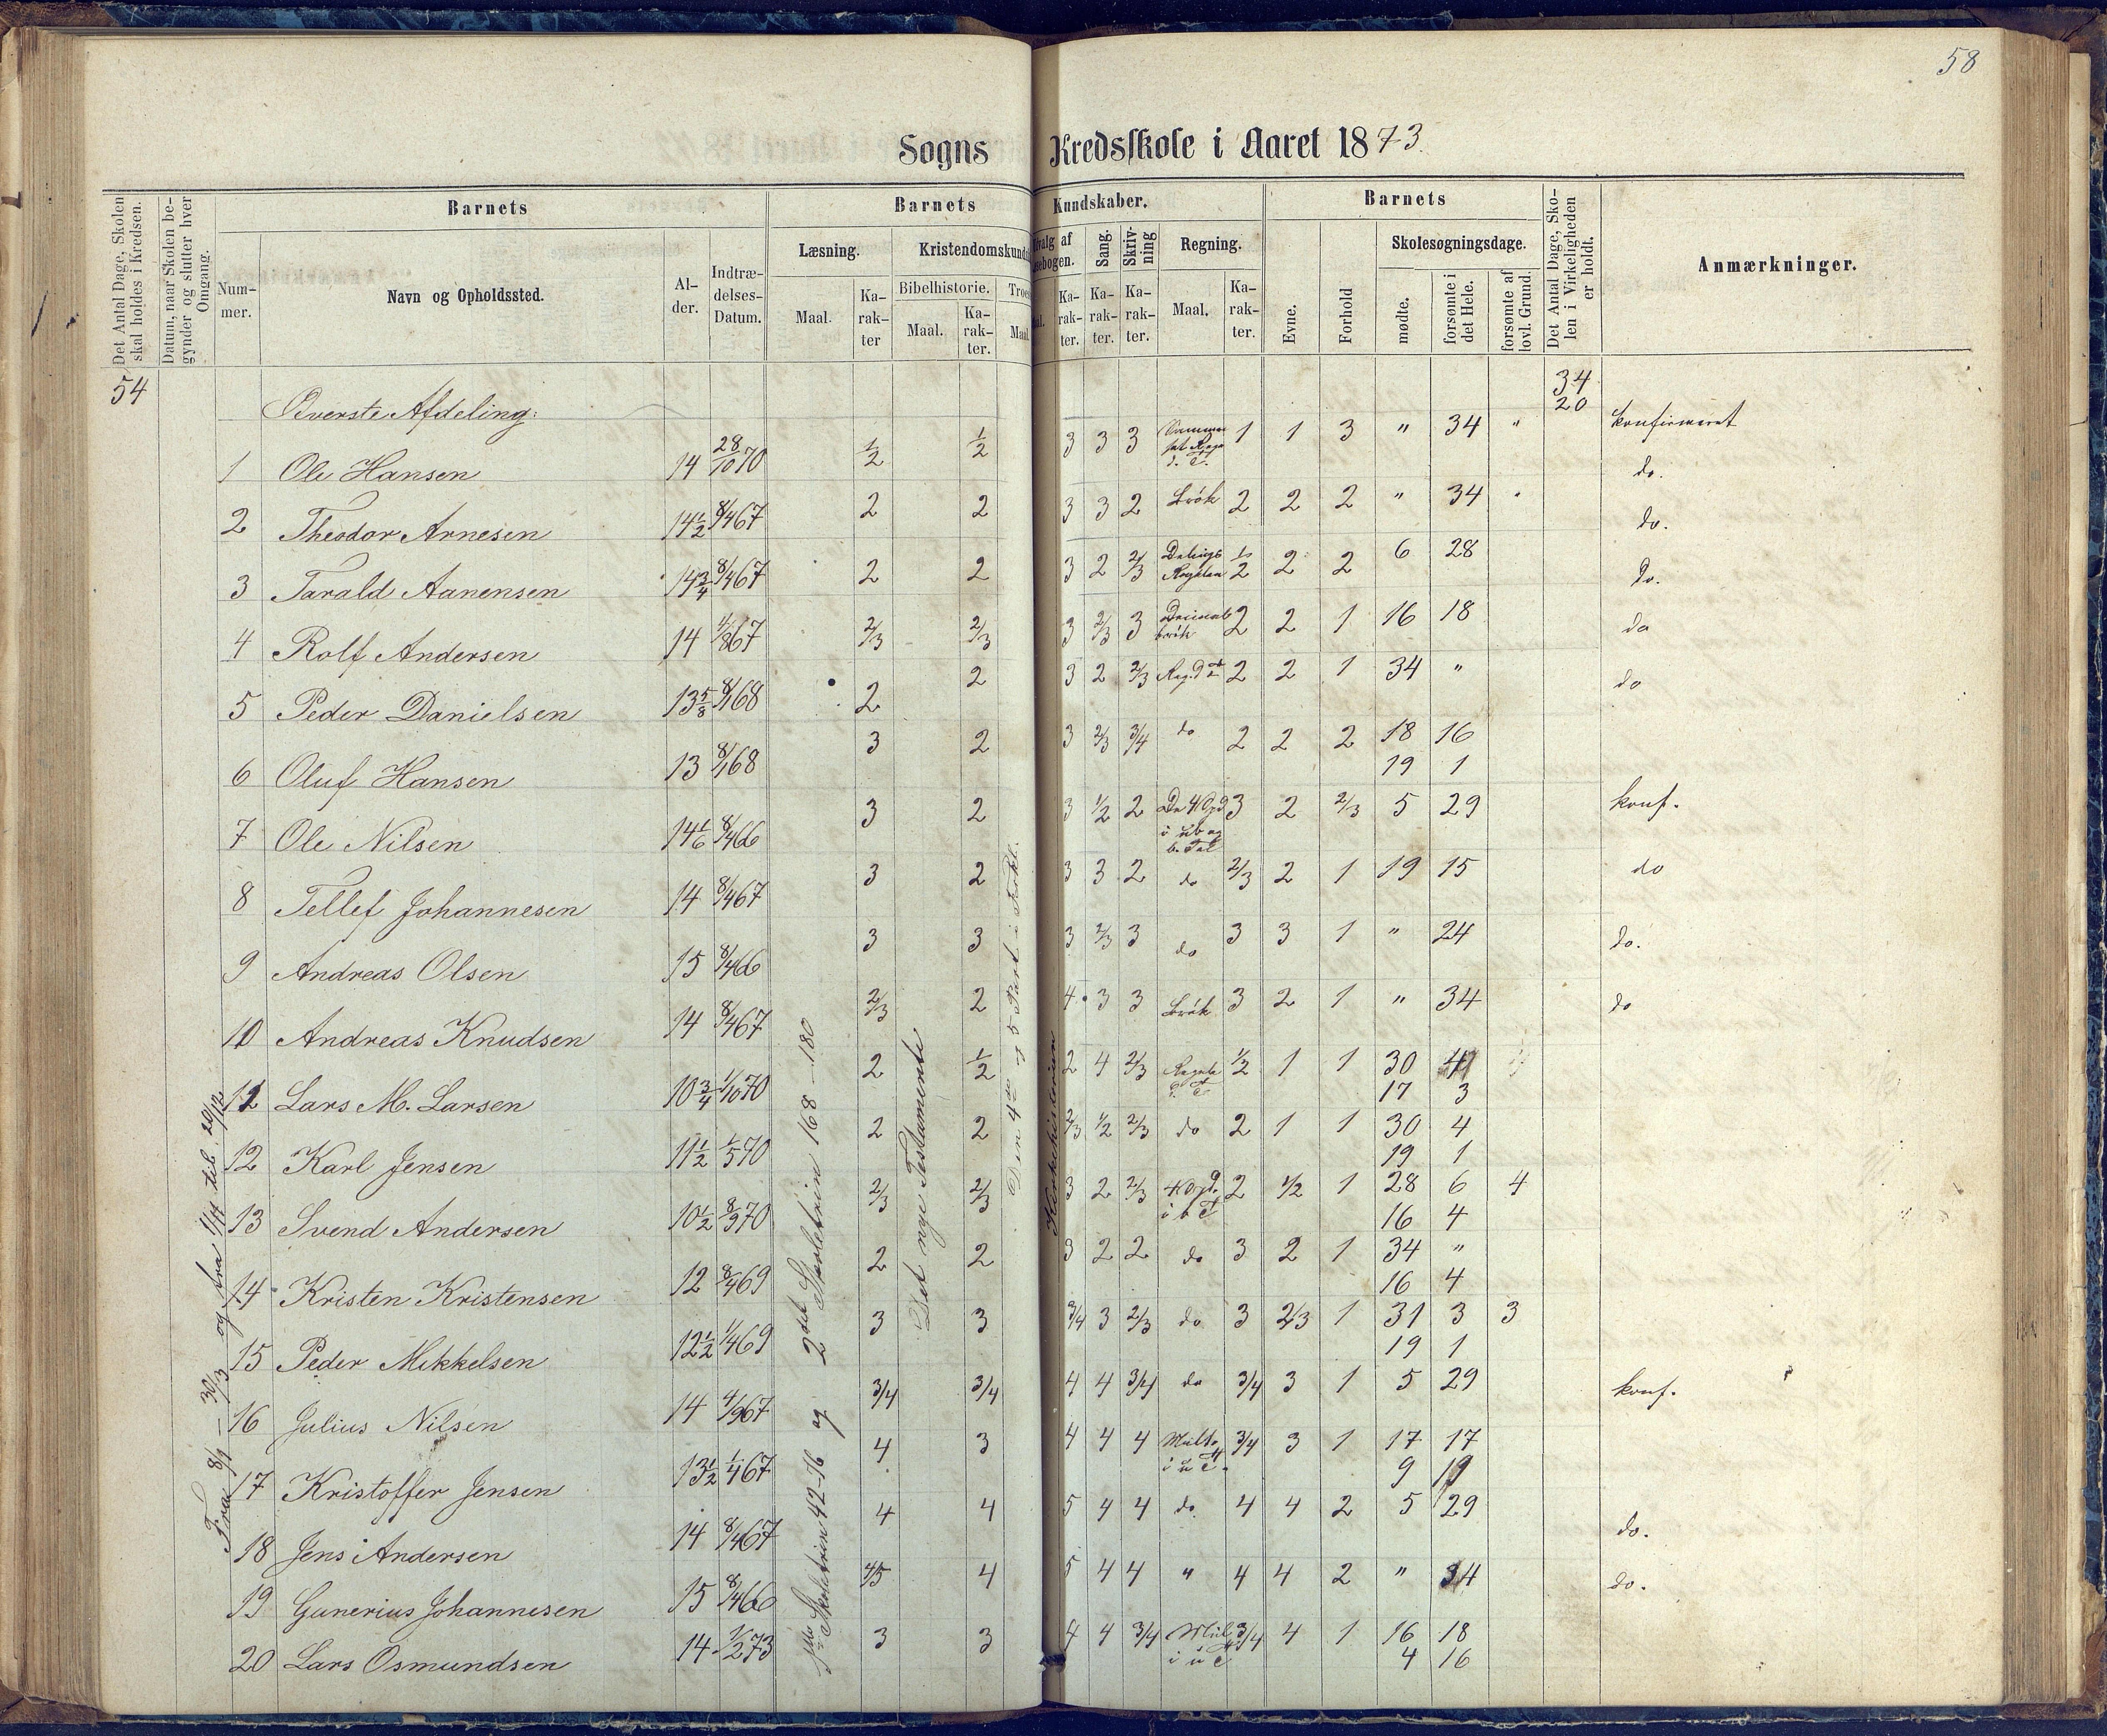 58
Sogns Kredsskole i Aaret 1873.
Det Antal Dage, Skolen skal holdes i Kredsen.
Datum, naar Skolen begynder og slutter hver Omgang.
Barnets
Nummer.
Navn og Opholdssted.
Alder.
Indtrædelses-Datum.
Barnets Kundskaber.
Læsning.
Maal.
Karakter
Kristendomskunds
Bibelhistorie.
Maal.
Karakter.
Troes
Maal.
dvalg af
sebogen.
Karakter.
Sang.
Karakter.
Skrivning
Karakter.
Regning.
Maal.
Karakter.
Barnets
Evne.
Forhold
Skolesøgningsdage.
mødte.
forsømte i det Hele.
forsømte af lovl. Grund.
Det Antal Dage, Skolen i Virkeligheden er holdt.
Anmærkninger.
54
34
20
Øverste Afdeling:
1 Ole Hansen 14 28/10 70 1/2 1/2 3 3 3 1 1 3 " 34 " konfirmeret
2 Theodor Arnesen 14 1/2 8/4 67 2 2 3 3 2 Brøk 2 2 2 " 34 do.
3 Tarald Aanensen 14 3/4 8/4 67 2 2 3 2 2/3 Delings Regelen 1/2 2 2 6 28 do.
4 Rolf Andersen 14 4/8 67 2/3 2/3 3 2/3 3 Decimalbrøk 2 2 1 16 18 do.
5 Peder Danielsen 13 5/8 8/1 68 2 2 3 2 2/3 2 2 1 34 " do
6 Oluf Hansen 13 8/1 68 3 2 3 2/3 3/4 do 2 2 2 18 16 do
19 1
7 Ole Nilsen 14 1/6 8/4 66 3 2 3 1/2 2 3 2 2/3 5 29 konf.
8 Tellef Johannesen 14 8/4 67 3 2 3 3 2 do 2/3 2 1 19 15 do
9 Andreas Olsen 15 8/4 66 3 3 3 2/3 3 do 3 3 1 " 24 do.
10 Andreas Knudsen 14 8/4 67 2/3 2 4 3 3 Brøk 3 2 1 " 34 do
11 Lars M. Larsen 10 3/4 1/10 70 2 1/2 2 4 2/3 1/2 1 1 30 4
17 3
12 Karl Jensen 11 1/2 1/5 70 2 2 2/3 1/2 2/3 do 2 1 1 30 4
19 1
13 Svend Andersen 10 1/2 8/9 70 2/3 2/3 3 2 2/3 2 1/2 1 28 6 4
16 4
14 Kristen Kristensen 12 8/4 69 2 2 3 2 2 do 3 2 1 34 "
16 4
15 Peder Mikkelsen 12 1/2 1/4 69 3 3 3/4 3 2/3 do 3 2/3 1 31 3 3
19 1
16 Julius Nilsen 14 4/9 67 3/4 3/4 4 4 3/4 do 3/4 3 1 5 29 konf.
17 Kristoffer Jensen 13 1/2 1/4 67 4 3 4 4 4 Mult. i u T. 3/4 3 1 17 17
9 19
18 Jens Andersen 14 8/4 67 4 4 5 4 4 do. 4 4 2 5 29 do.
19 Gunerius Johannesen 15 8/4 66 4/5 4 5 4 4 " 4 4 2 " 34 do.
20 Lars Osmundsen 14 1/2 73 3 3 4 4 3/4 Mul i u T 3/4 4 1 16 18
4 16
Fra 8/1 – 30/3 og fra 1/11 til 20/12
1ste Skoletrin 42-76 og 2det Skoletrin 168–180
Det nye Testamente
Den 4de og 5 Part i Forkl.
Kirkehistorien